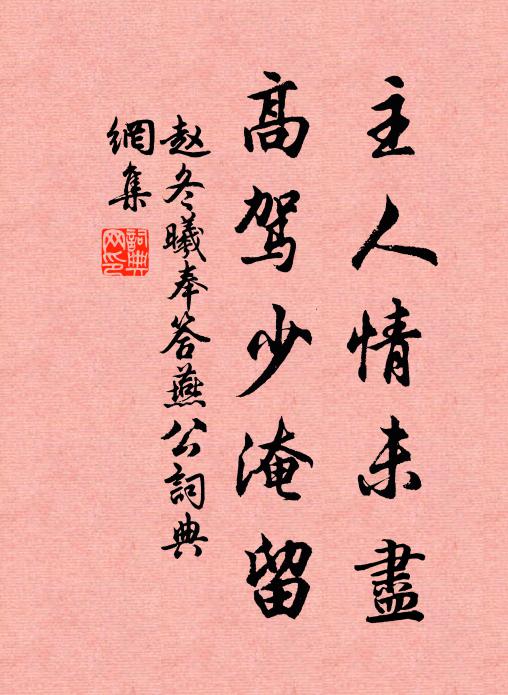 主人情未盡
高駕少淹留
赵冬曦奉答燕公詞典
網集
詞典
网印